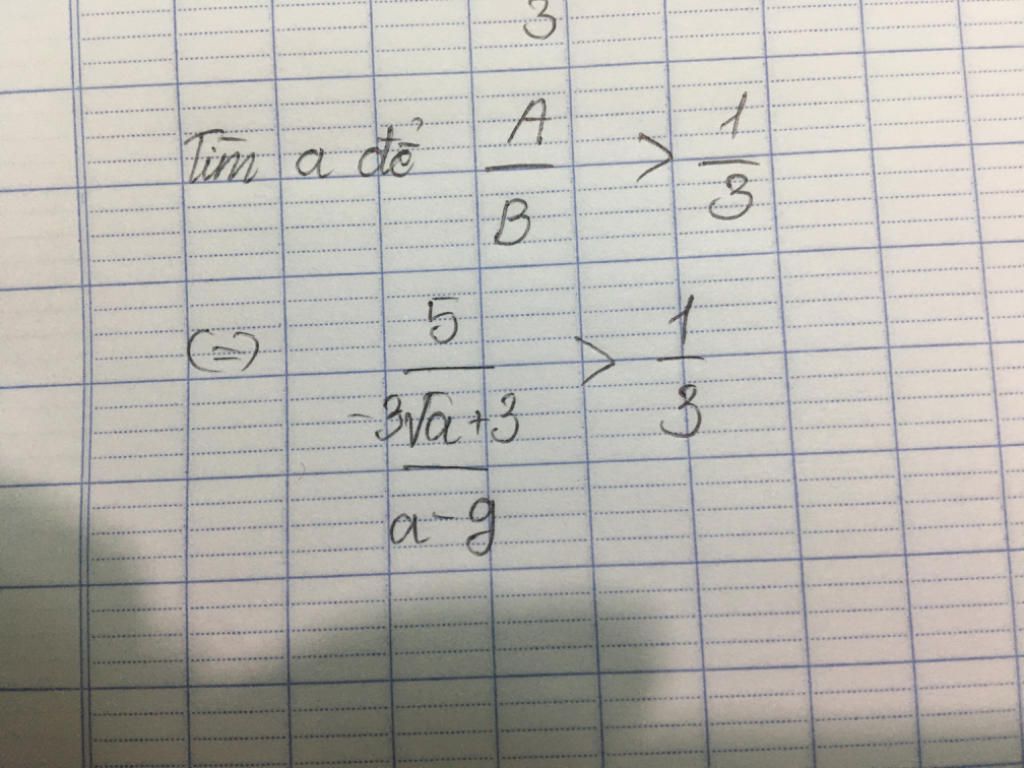 3
Tìm a để A/B > 1/3
(=) 5/((-3√a+3)/(a-9)) > 1/3